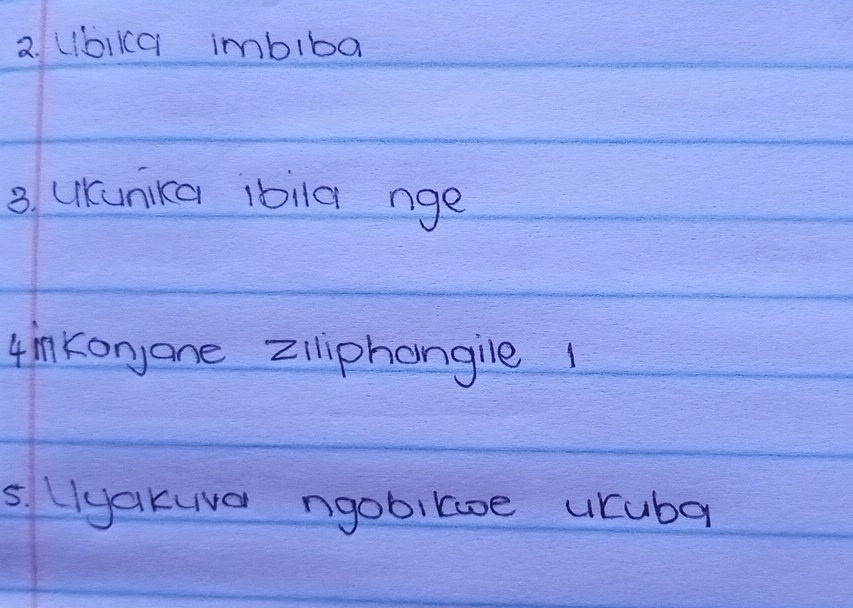 2. Ubika imbiba
3. Ukunika ibila nge
4 inkonjane ziliphangile i
5. Uyakuva ngobikwe ukuba